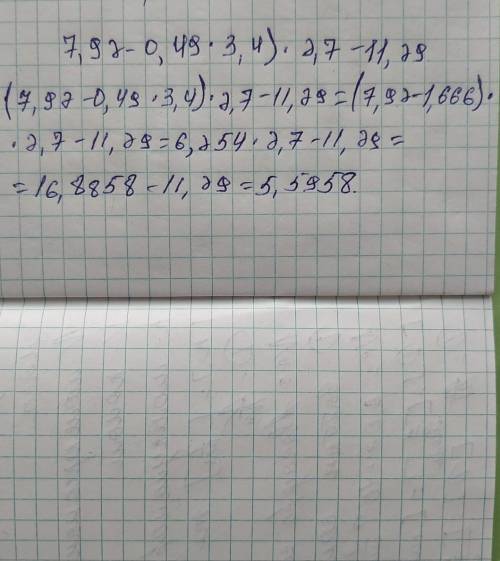 7,92-0,49·3,4)·2,7-11,29
(7,92-0,49·3,4)·2,7-11,29=(7,92-1,666)·
·2,7-11,29=6,254·2,7-11,29=
=16,8858-11,29=5,5958.